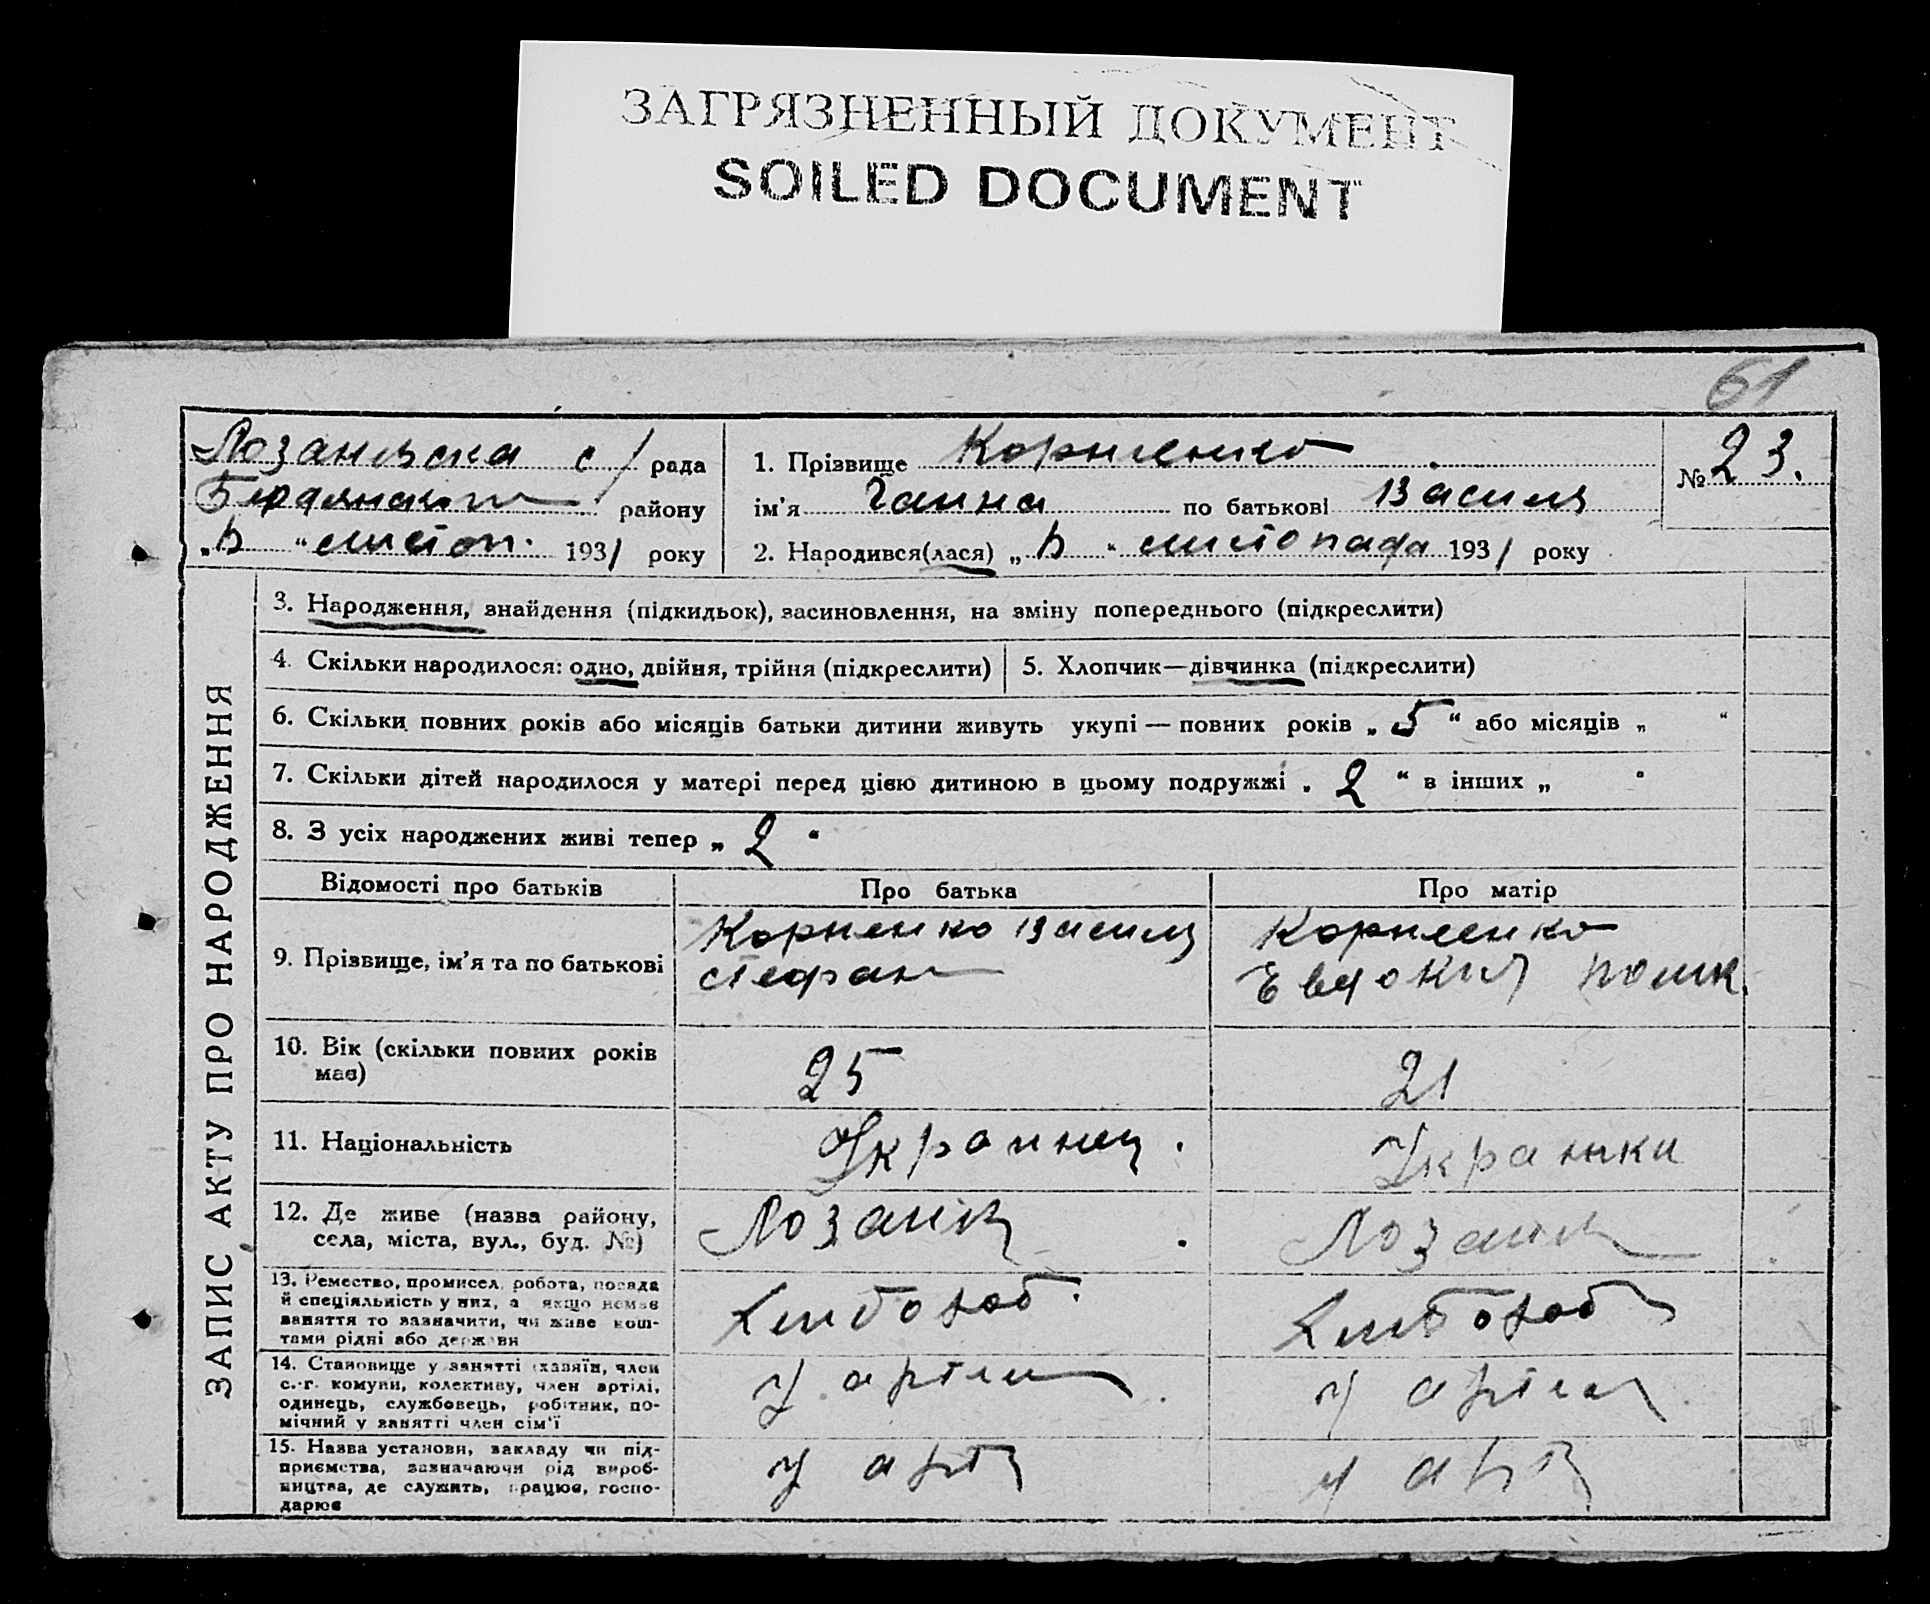 ЗАГРЯЗНЕННЫЙ ДОКУМЕНТ
SOILED DOCUMENT
61
Лозановска с/рада
району
1931 року
1. Прізвище Корниенко
ім'я Ганна по батькові Васили
2. Народився(лася) „ " листопада 1931 року
№ 23.
ЗАПИС АКТУ ПРО НАРОДЖЕННЯ
3. Народження, знайдення (підкидьок), засиновлення, на зміну попереднього (підкреслити)
4. Скільки народилося: одно, двійня, трійня (підкреслити) 5. Хлопчик—дівчинка (підкреслити)
6. Скільки повних років або місяців батьки дитини живуть укупі — повних років „ 5 " або місяців „ "
7. Скільки дітей народилося у матері перед цією дитиною в цьому подружжі „ 2 " в інших „ "
8. З усіх народжених живі тепер „ 2 "
Відомості про батьків Про батька Про матір
9. Прізвище, ім'я та по батькові
Корниенко Васили
Стефан
Корниенко
Евдокия
10. Вік (скільки повних років має) 25 21
11. Національність Украинец. Украинка
12. Де живе (назва району, села, міста, вул., буд. №)
13. Ремество, промисел, робота, посада
й спеціяльність у них, а якщо немає
заняття то зазначити, чи живе кош-
тами рідні або держави
Хлибороб. Хлибороб
14. Становище у занятті (хазяїн, член
с.-г. комуни, колективу, член артілі,
одинець, службовець, робітник, по-
мічний у занятті член сім'ї
У артили У артил
15. Назва установи, закладу чи під-
приємства, зазначаючи рід вироб-
ництва, де служить, працює, госпо-
дарює
У арт У арт